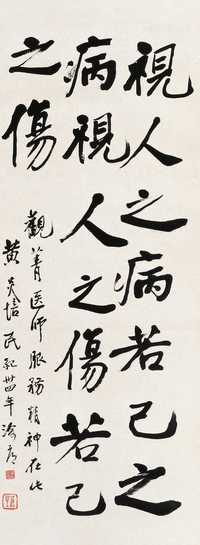 視人之病若己之
病視人之傷若己
之傷
觀菁医師服務精神在此
黄炎培 民紀卅四年渝